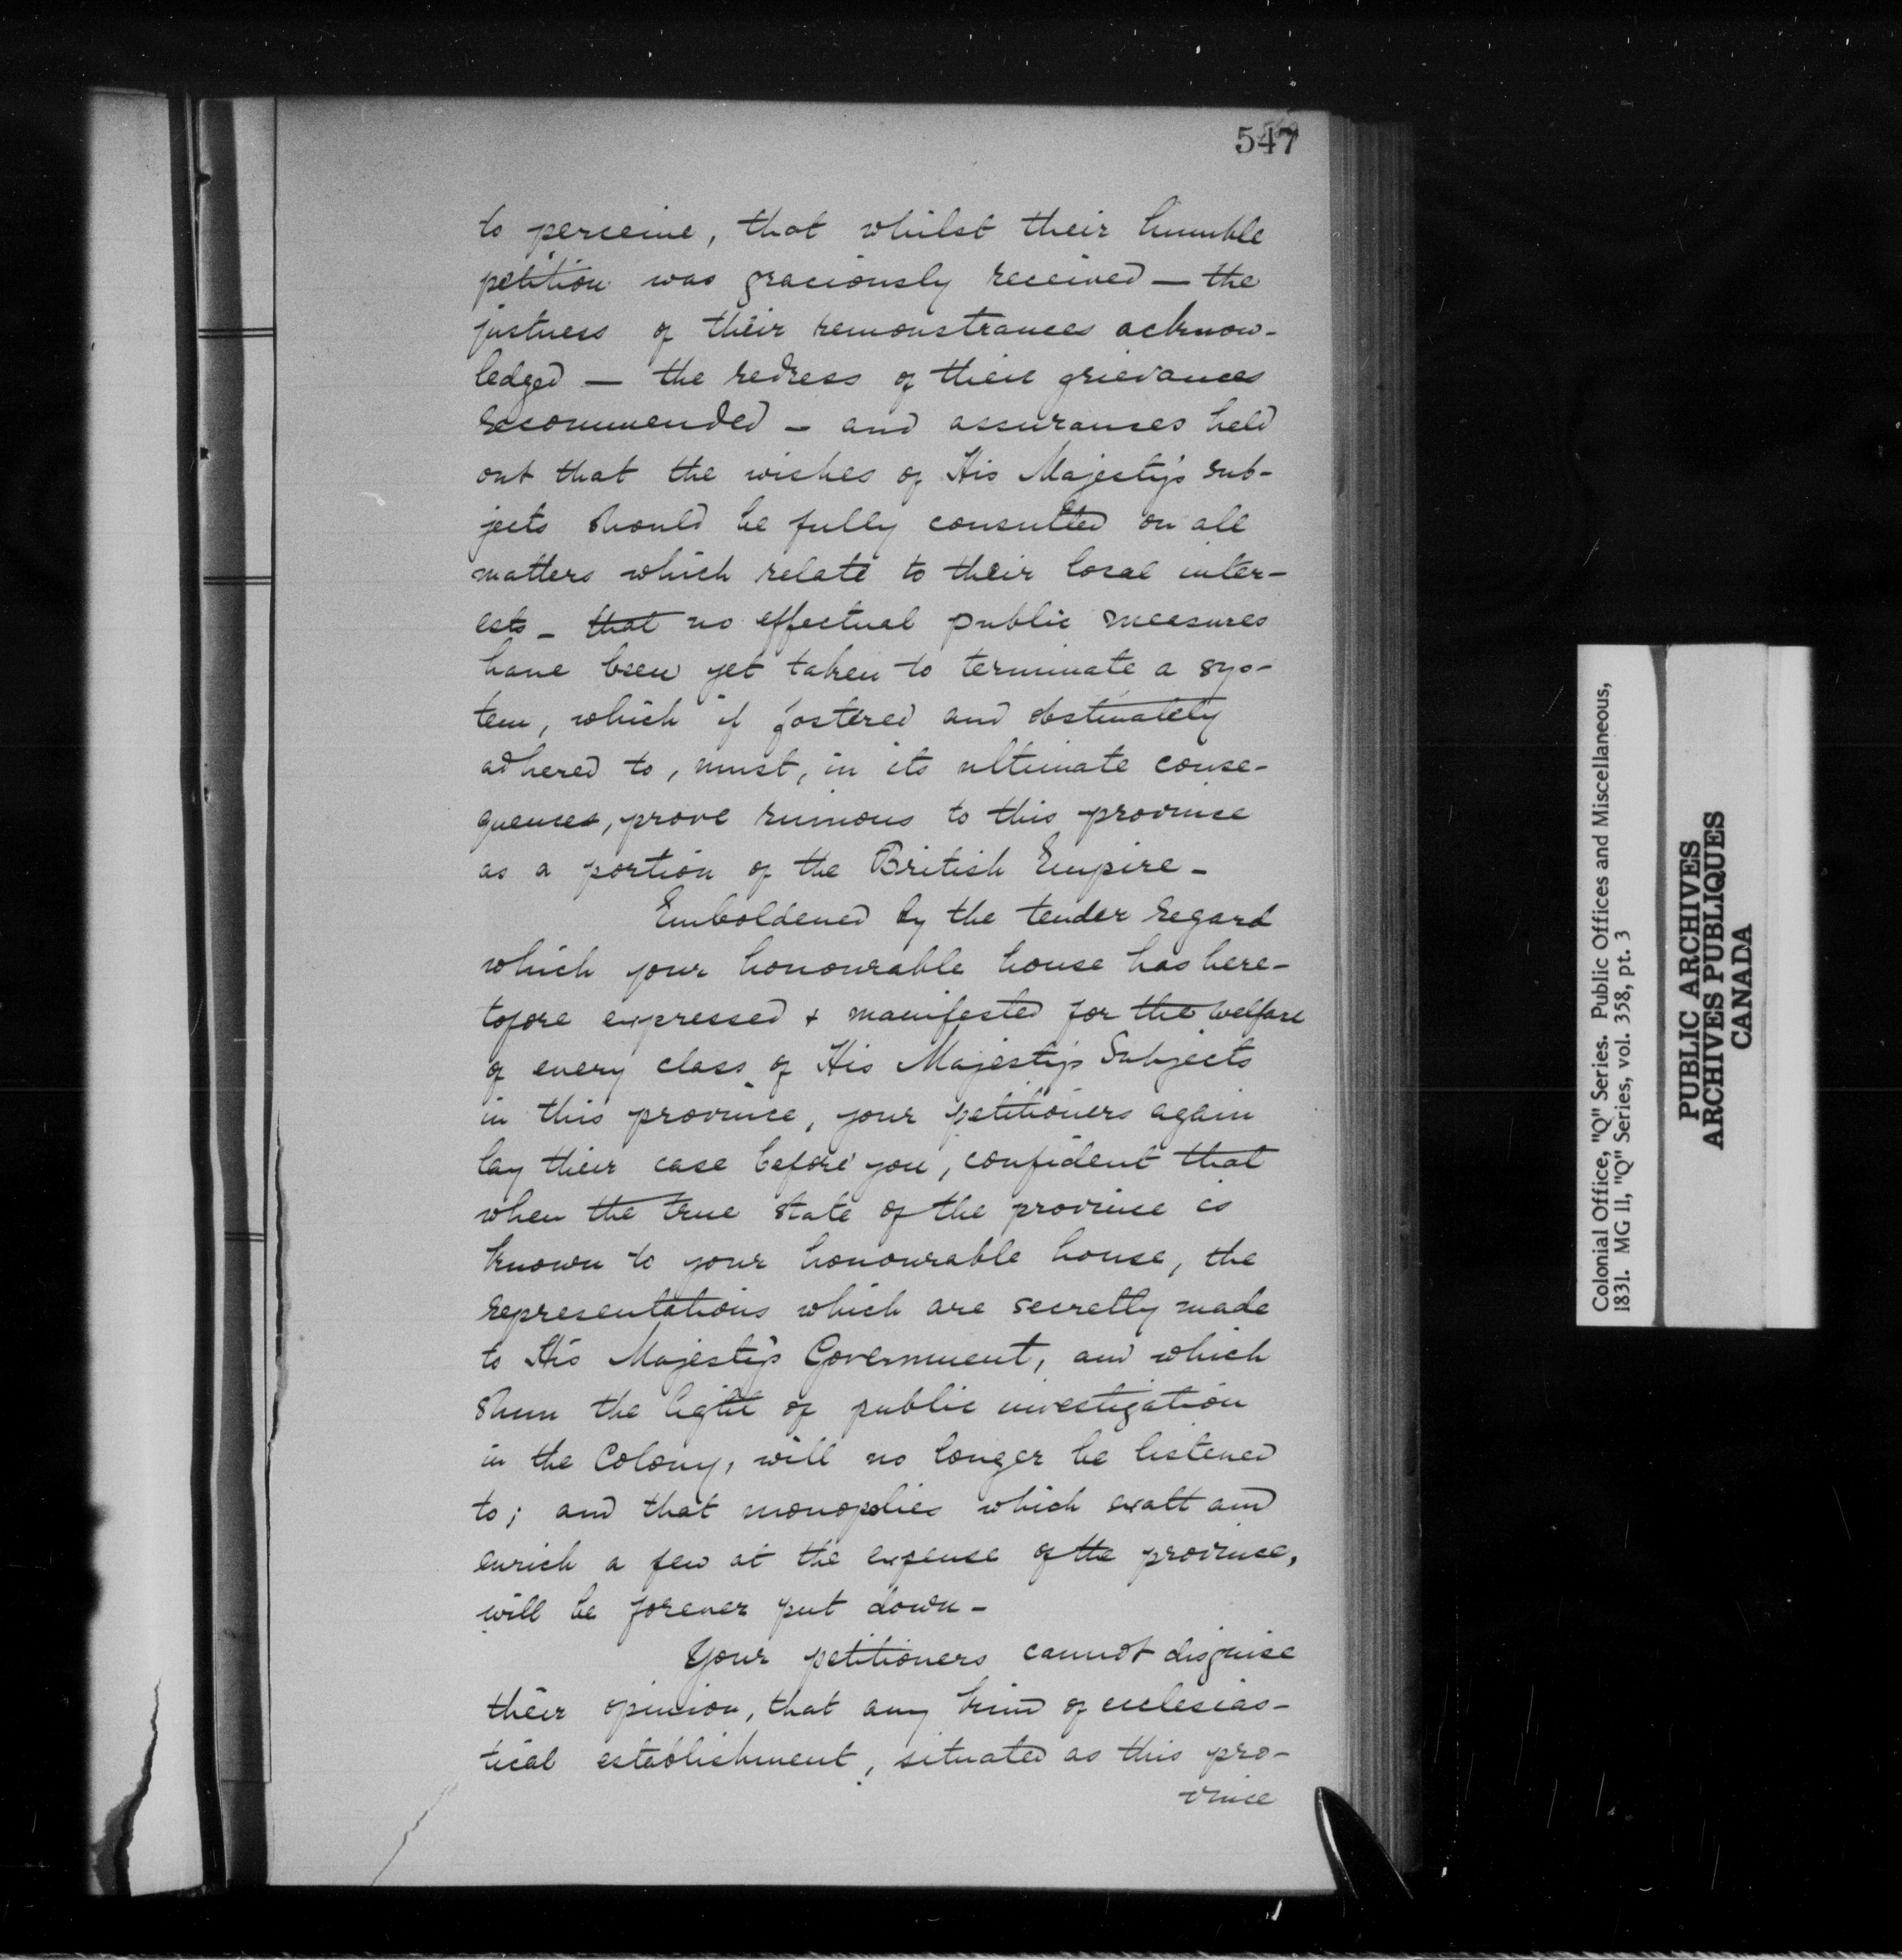 547
to perceive, that whilst their humble
petition was graciously received — the
justness of their remonstrances acknow-
ledged — the redress of their grievances
recommended - and assurances held
out that the wishes of His Majesty's sub-
jects should be fully consulted on all
matters which relate to their local inter-
ests - that no effectual public measures
have been yet taken to terminate a sys-
tem, which if fostered and obstinately
adhered to, must, in its ultimate conse-
quences, prove ruinous to this province
as a portion of the British Empire -
Emboldened by the tender regard
which your honourable house has here-
tofore expressed & manifested for the welfare
of every class of His Majesty's Subjects
in this province, your petitioners again
lay their case before you, confident that
when the true state of the province is
known to your honourable house, the
representations which are secretly made
to His Majesty's Government, and which
shun the light of public investigation
in the Colony, will no longer be listened
to; and that monopolies which exalt and
enrich a few at the expense of the province,
will be forever put down -
Your petitioners cannot disguise
their opinion, that any kind of ecclesias-
tical establishment, situated as this pro-
vince
Colonial Office, "Q" Series. Public Offices and Miscellaneous,
1831. MG 11, "Q" Series, vol. 358, pt. 3
PUBLIC ARCHIVES
ARCHIVES PUBLIQUES
CANADA